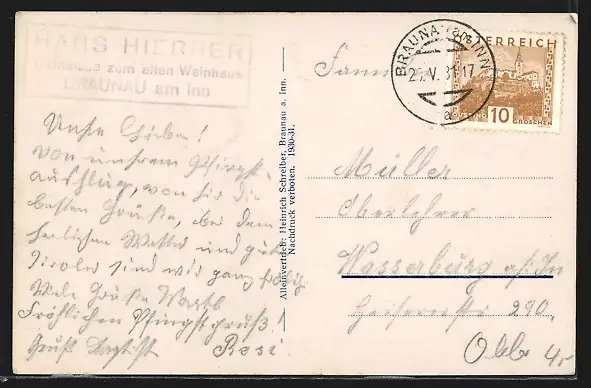 HANS HIERRER
Weinstube zum alten Weinhaus
BRAUNAU am Inn
Unsre Lieben!
von unserem Pfingst-
ausflug, von hier die
besten Grüße, bei dem
herrlichen Wetter und gute
Tiroler sind wir ganz
Viele Grüße
Fröhlichen Pfingstgruß!
Gruß
Resi
Alleinvertrieb: Heinrich Schreiber, Braunau a. Inn.
Nachdruck verboten. 1930-31.
BRAUNAU am INN
V. 31 17
a
ÖSTERREICH
10
GROSCHEN
Müller
Oberlehrer
Wasserburg a/Inn
290
Obb